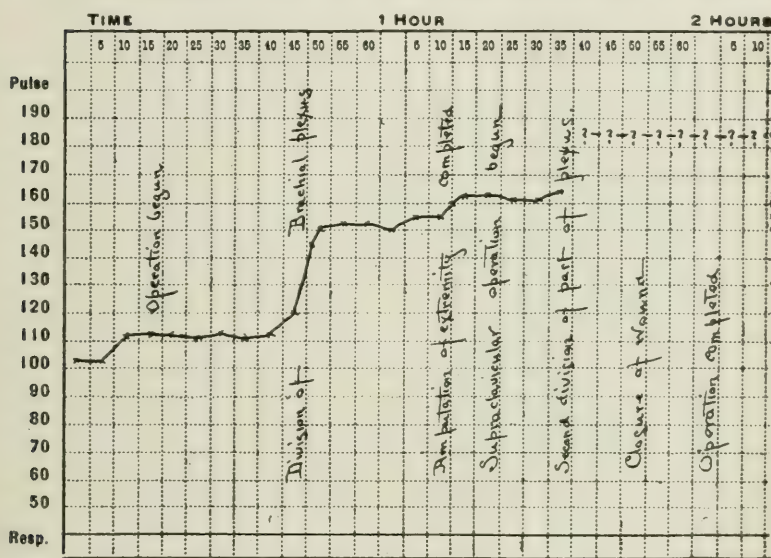 TIME 1 HOUR 2 HOURS
5 10 15 20 25 30 35 40 45 50 55 60 5 10 15 20 25 30 35 40 45 50 55 60 5 10
Pulse
190
180
170
160
150
140
130
120
110
100
90
80
70
60
50
Resp.
Operation begun
Division of Brachial plexus
Amputation of extremity completed
Supraclavicular operation begun
Second division of part of plexus.
Closure of wound
Operation completed.
-?-?-?-?-?-?-?-?